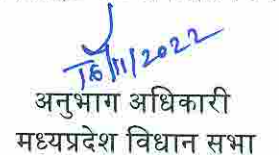 16/11/2022
अनुभाग अधिकारी
मध्यप्रदेश विधान सभा